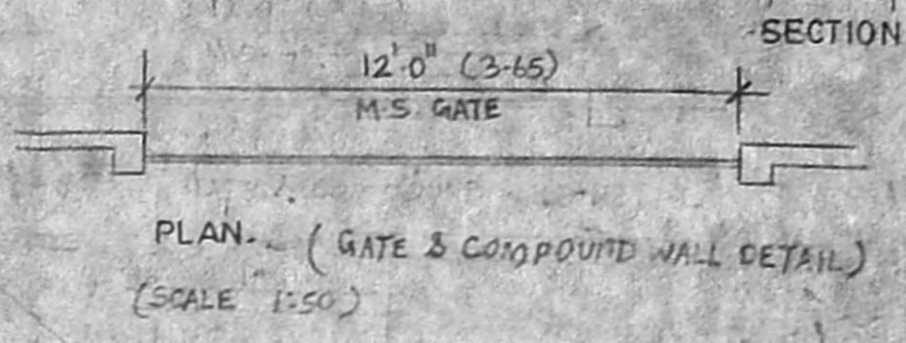 SECTION
12'-0" (3-65)
M.S. GATE
PLAN. (GATE & COMPOUND WALL DETAIL)
(SCALE 1:50)